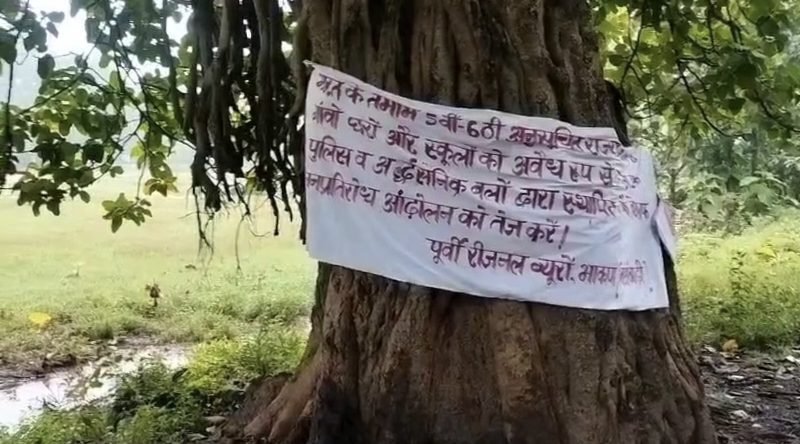 के तमाम 5वीं-6ठी अनुसूचित
गांवों घरों और स्कूलों को अवैध रूप से
पुलिस व अर्द्धसैनिक बलों द्वारा स्थापित
जनप्रतिरोध आंदोलन को तेज करें!
पूर्वी रीजनल ब्यूरो, भाकपा